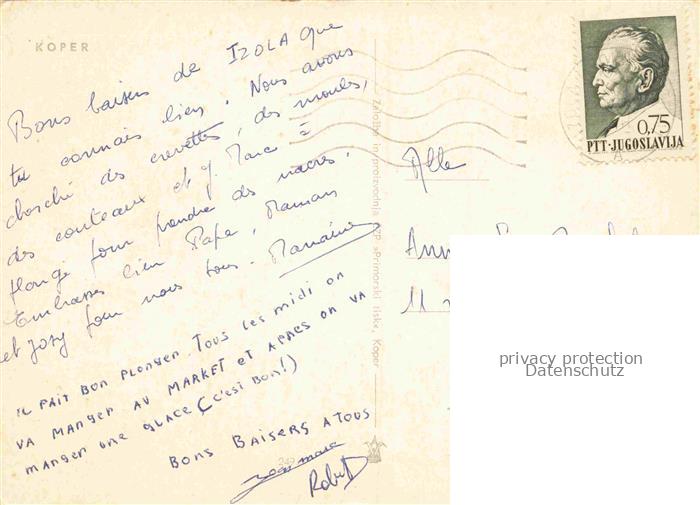 KOPER
Bons baisers de IZOLA que
tu connais bien. Nous avons
cherché des crevettes, des moules,
des couteaux et J. Marc a
plongé pour prendre des nacres.
Embrasses bien Papa, Maman
et Josy pour nous tous. Marraine
IL FAIT BON PLONGER TOUS LES MIDI ON
VA MANGER AU MARKET ET APRES ON VA
MANGER UNE GLACE (C'EST BON!)
BONS BAISERS A TOUS
Jean marc
Robert
Založba in proizvodnja ČZP »Primorski tisk«, Koper
0,75
PTT·JUGOSLAVIJA
Mlle
11
privacy protection
Datenschutz